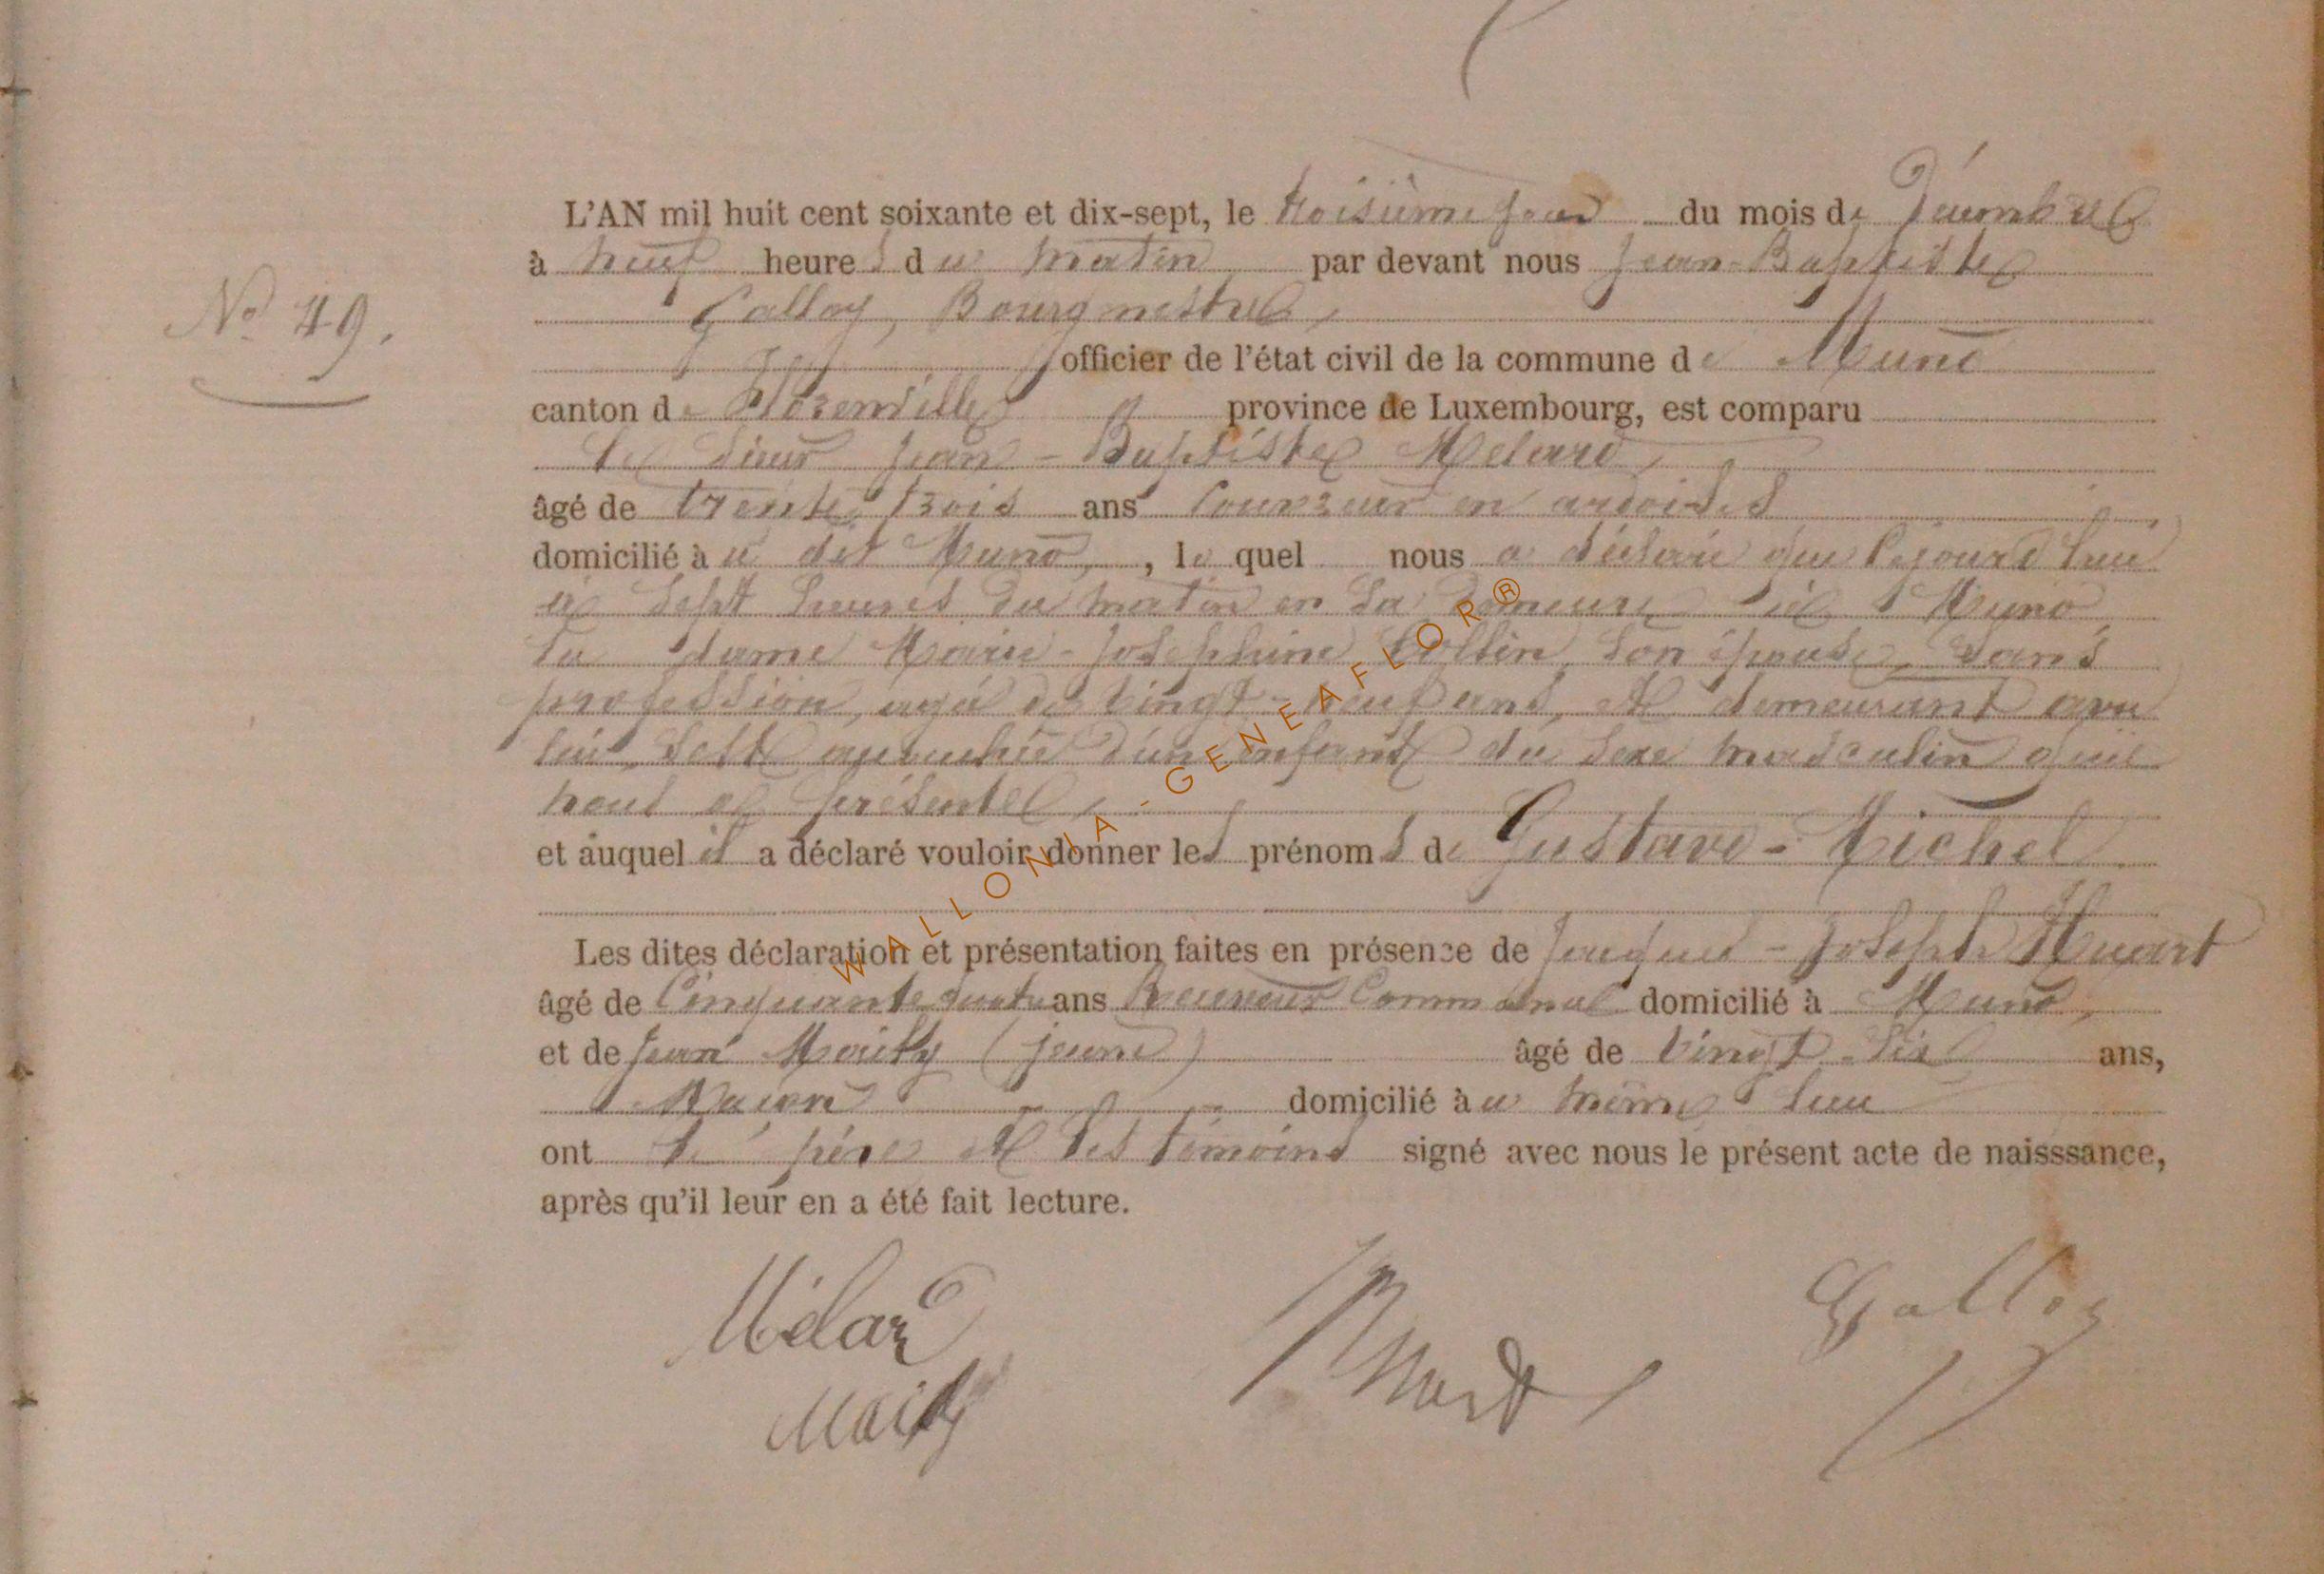 L'AN mil huit cent soixante et dix-sept, le troisième jour du mois de Décembre
à neuf heures du matin par devant nous Jean-Baptiste
N° 49.
Galloy, Bourgmestre,
officier de l'état civil de la commune de Muno
canton de Florenville province de Luxembourg, est comparu
le sieur Jean-Baptiste Melard,
âgé de trente trois ans couvreur en ardoises
domicilié à u dit Muno, , lequel nous a déclaré que cejourd'hui
à sept heures du matin en sa demeure sise à Muno
la dame Marie-Joséphine Collin, son épouse, sans
profession, agée de vingt-neuf ans, et demeurant avec
lui, s'est accouchée d'un enfant du sexe masculin qu'il
nous a présenté,
et auquel il a déclaré vouloir donner les prénoms de Gustave-Michel
Les dites déclaration et présentation faites en présence de Jacques-Joseph Huart
âgé de Cinquante quatre ans Receveur Communal domicilié à Muno,
et de Jean Maithy (jeune) âgé de vingt-six ans,
Maçon domicilié à u même lieu
ont le père et les témoins signé avec nous le présent acte de naisssance,
après qu'il leur en a été fait lecture.
Mélard Huart Galloy
WALLONIA - GENEAFLOR®